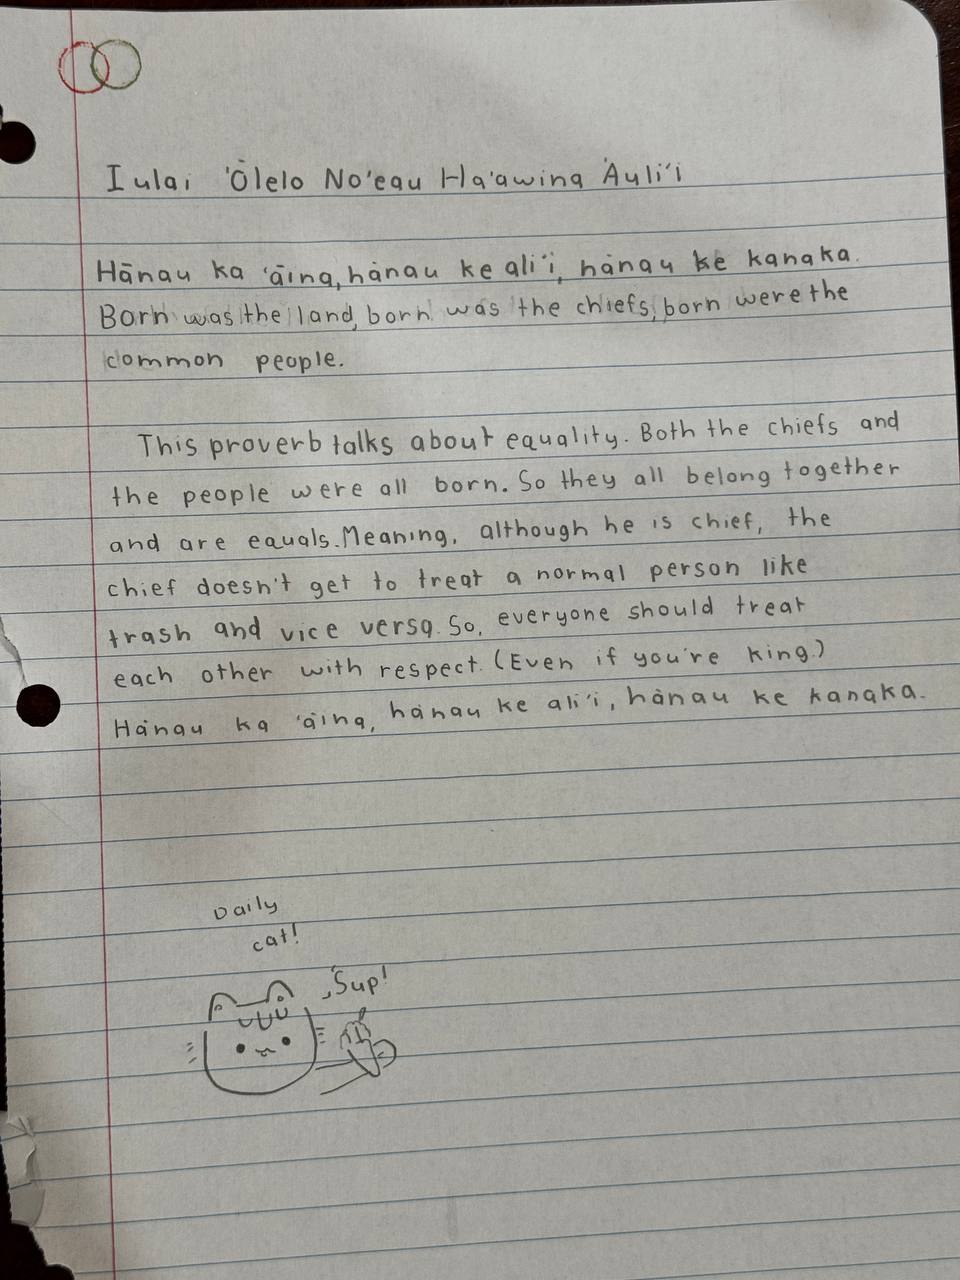 Iulai 'Ōlelo No'eau Ha'awina 'Auli'i
Hānau ka 'āina, hānau ke ali'i, hānau ke kanaka.
Born was the land, born was the chiefs, born were the
common people.
This proverb talks about equality. Both the chiefs and
the people were all born. So they all belong together
and are equals. Meaning, although he is chief, the
chief doesn't get to treat a normal person like
trash and vice versa. So, everyone should treat
each other with respect. (Even if you're king.)
Hānau ka 'āina, hānau ke ali'i, hānau ke kanaka.
Daily
cat!
'Sup!